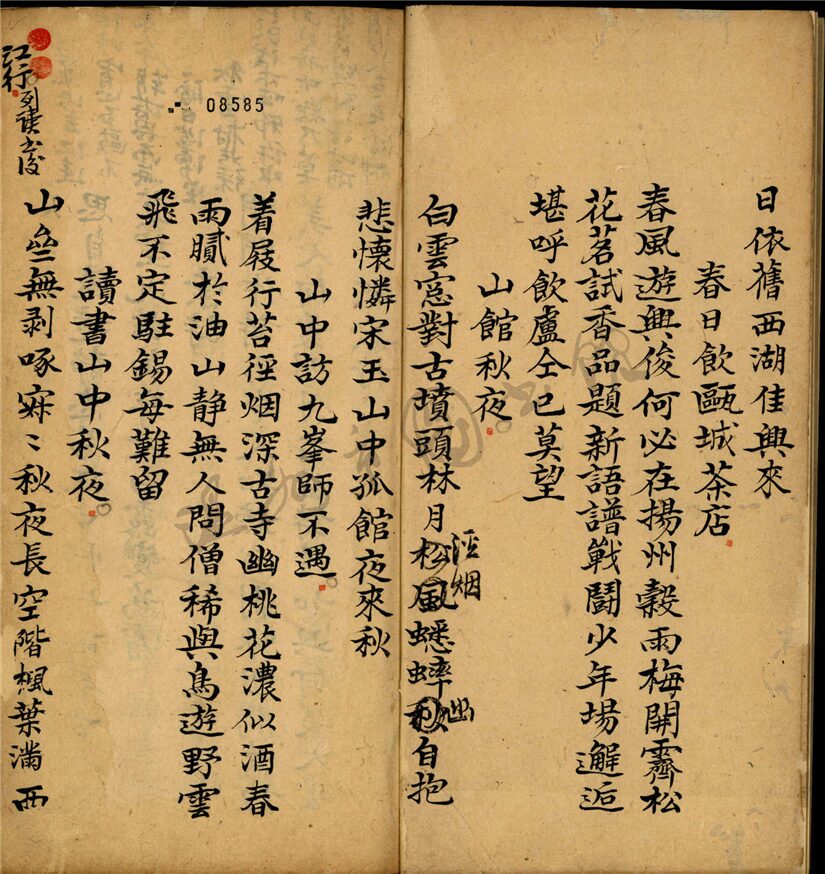 日依舊西湖佳興來
春日飲甌城茶店
春風遊興俊何必在揚州穀雨梅開霽松
花茗試香品題新語譜戰鬪少年場邂逅
堪呼飲盧仝已莫望
山館秋夜
白雲窓對古墳頭林月松風蟋蟀秋自抱
烟
幽
悲懷憐宋玉山中孤館夜來秋
08585
山中訪九峯師不遇
着屐行苔徑烟深古寺幽桃花濃似酒春
雨膩於油山靜無人問僧稀與鳥遊野雲
飛不定駐錫每難留
讀書山中秋夜
山無剥啄寂〻秋夜長空階楓葉滿西
江行